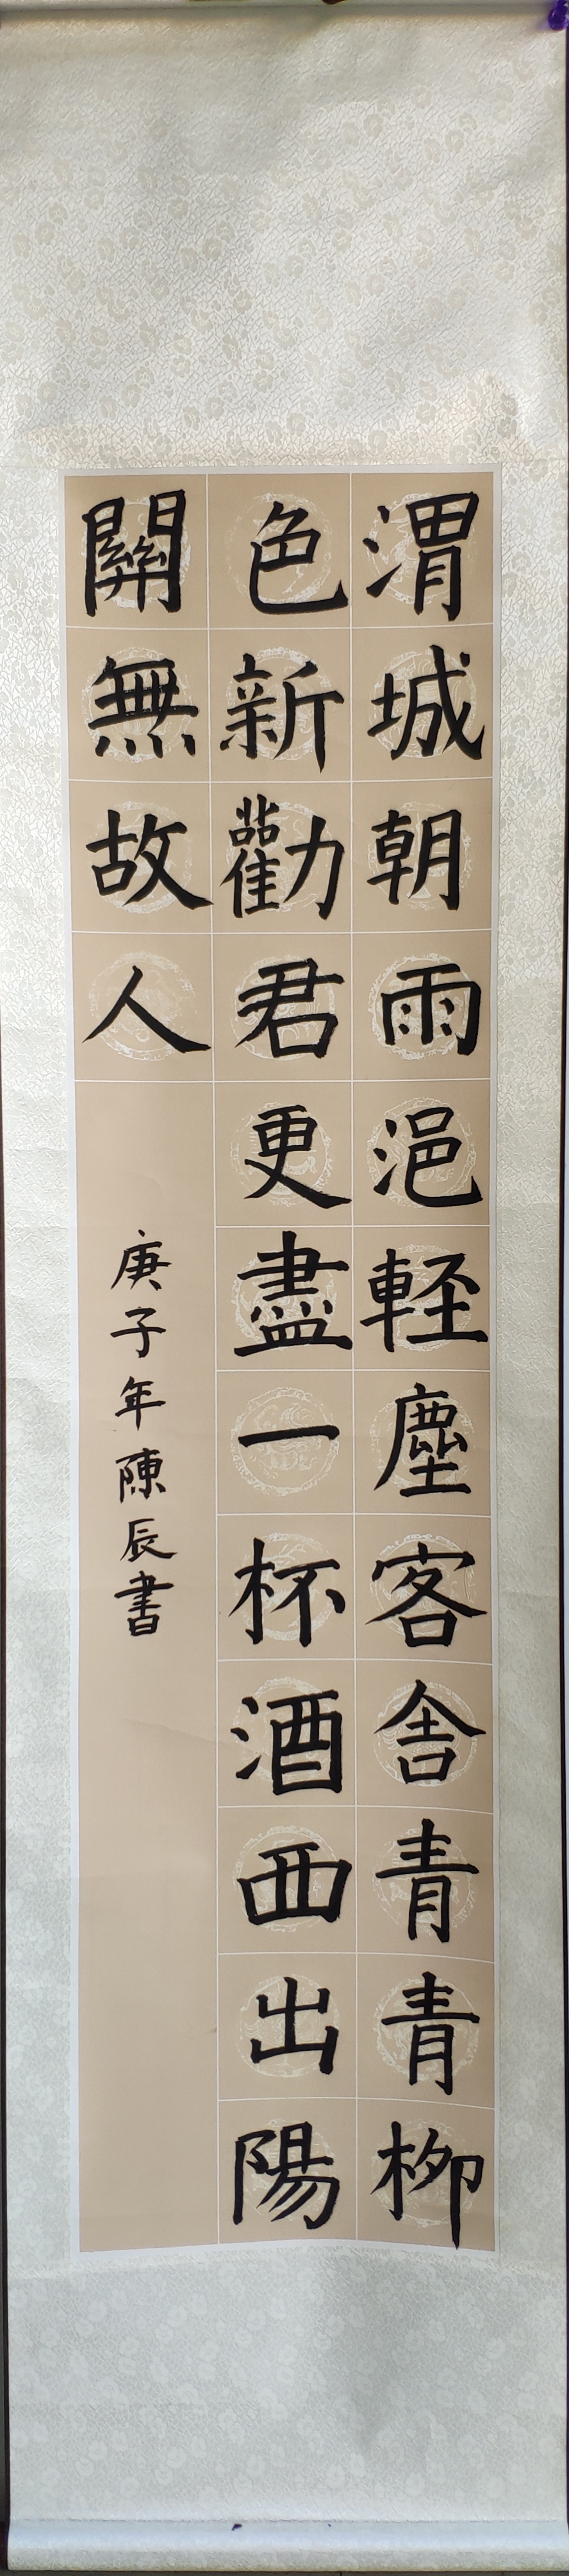 渭城朝雨浥軽塵客舎青青柳
色新勸君更盡一杯酒西出陽
關無故人
庚子年陳辰書